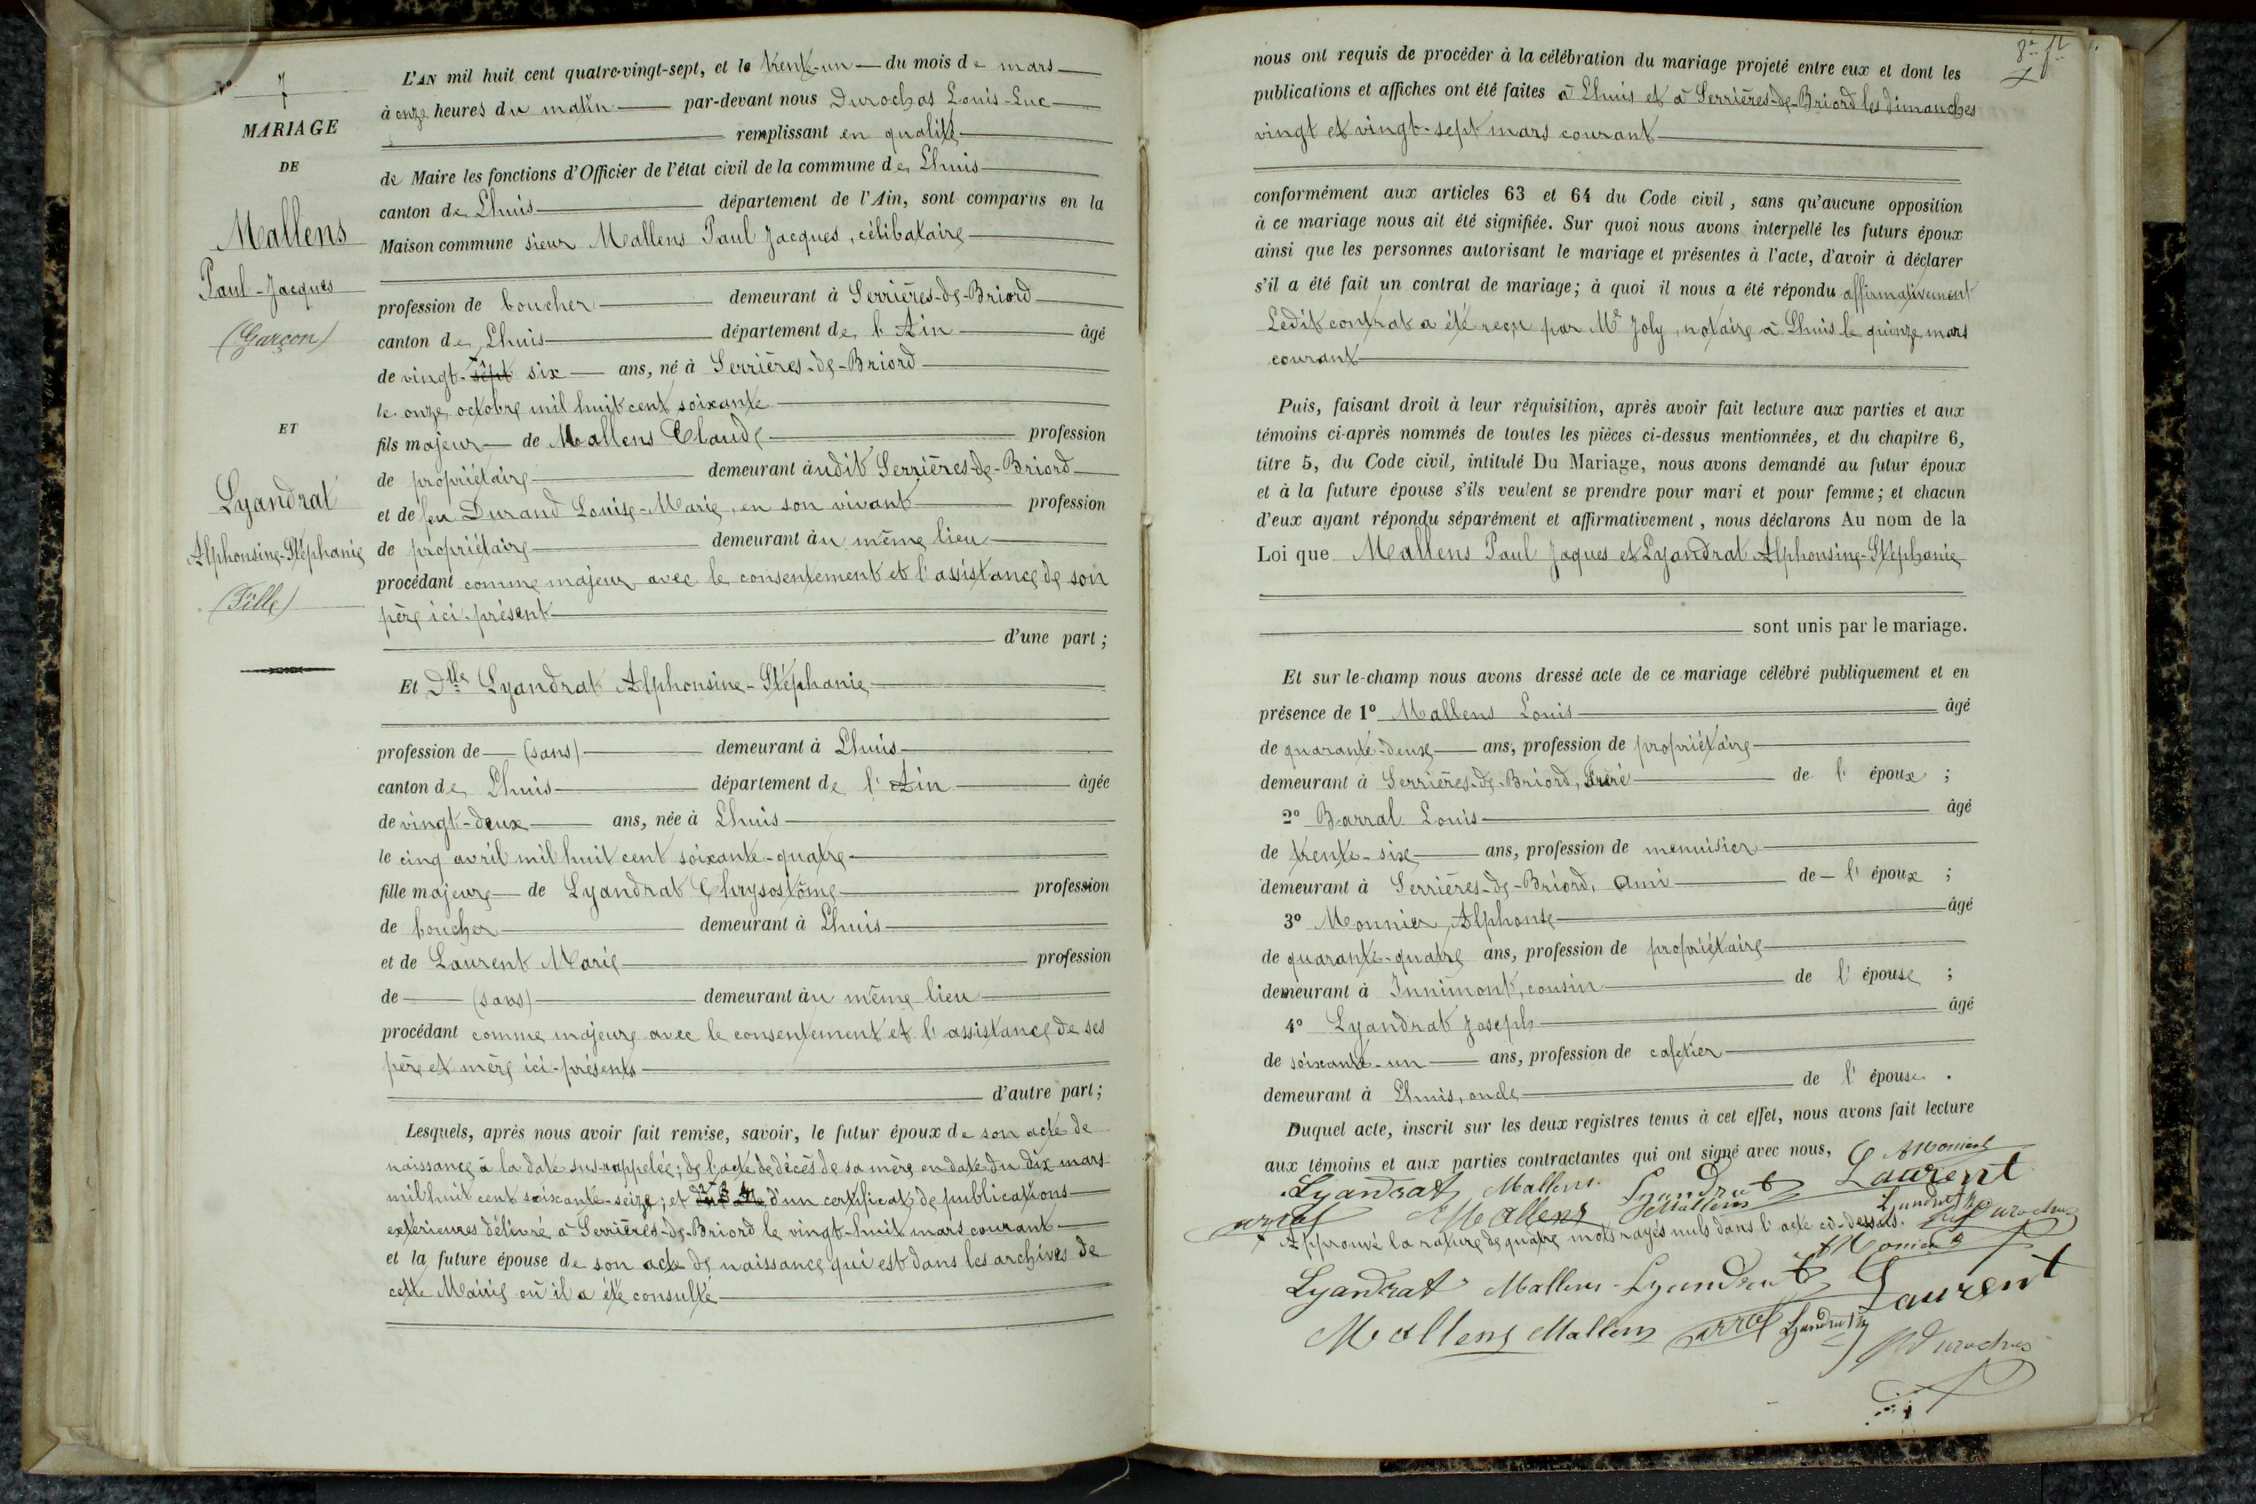 N° 7
MARIAGE
DE
Mallens
Paul-Jacques
(Garçon)
ET
Lyandrat
Alphonsine-Stéphanie
(Fille)
L'AN mil huit cent quatre-vingt-sept, et le trente-un du mois de mars
à onze heures du matin par-devant nous Durochas Louis-Luc
remplissant en qualité
de Maire les fonctions d'Officier de l'état civil de la commune de Lhuis
canton de Lhuis département de l'Ain, sont comparus en la
Maison commune sieur Mallens Paul Jacques, célibataire
profession de boucher demeurant à Serrières-de-Briord
canton de Lhuis département de l'Ain âgé
de vingt-sept six ans, né à Serrières-de-Briord
le onze octobre mil huit cent soixante
fils majeur de Mallens Claude profession
de propriétaire demeurant audit Serrières-de-Briord
et de feu Durand Louise-Marie, en son vivant profession
de propriétaire demeurant au même lieu
procédant comme majeur avec le consentement et l'assistance de son
père ici-présent
d'une part;
Et Dlle Lyandrat Alphonsine-Stéphanie
profession de (sans) demeurant à Lhuis
canton de Lhuis département de l'Ain âgée
de vingt-deux ans, née à Lhuis
le cinq avril mil huit cent soixante-quatre
fille majeure de Lyandrat Chrysostôme profession
de boucher demeurant à Lhuis
et de Laurent Marie profession
de (sans) demeurant au même lieu
procédant comme majeure avec le consentement et l'assistance de ses
père et mère ici-présents
d'autre part;
Lesquels, après nous avoir fait remise, savoir, le futur époux de son acte de
naissance à la date sus-rappelée; de l'acte de décès de sa mère en date du dix mars
mil huit cent soixante-seize; et d'un certificat de publications
extérieures délivré à Serrières-de-Briord le vingt-huit mars courant
et la future épouse de son acte de naissance qui est dans les archives de
cette Mairie où il a été consulté
nous ont requis de procéder à la célébration du mariage projeté entre eux et dont les
publications et affiches ont été faites à Lhuis et à Serrières-de-Briord les dimanches
vingt et vingt-sept mars courant
conformément aux articles 63 et 64 du Code civil, sans qu'aucune opposition
à ce mariage nous ait été signifiée. Sur quoi nous avons interpellé les futurs époux
ainsi que les personnes autorisant le mariage et présentes à l'acte, d'avoir à déclarer
s'il a été fait un contrat de mariage; à quoi il nous a été répondu affirmativement
Ledit contrat a été reçu par Me Joly, notaire à Lhuis le quinze mars
courant
Puis, faisant droit à leur réquisition, après avoir fait lecture aux parties et aux
témoins ci-après nommés de toutes les pièces ci-dessus mentionnées, et du chapitre 6,
titre 5, du Code civil, intitulé Du Mariage, nous avons demandé au futur époux
et à la future épouse s'ils veulent se prendre pour mari et pour femme; et chacun
d'eux ayant répondu séparément et affirmativement, nous déclarons Au nom de la
Loi que Mallens Paul Jaques et Lyandrat Alphonsine-Stéphanie
sont unis par le mariage.
Et sur le-champ nous avons dressé acte de ce mariage célébré publiquement et en
présence de 1° Mallens Louis âgé
de quarante-deux ans, profession de propriétaire
demeurant à Serrières-de-Briord, frère de l'époux;
2° Barral Louis âgé
de trente-six ans, profession de menuisier
demeurant à Serrières-de-Briord, ami de l'époux;
3° Monnier Alphonse âgé
de quarante-quatre ans, profession de propriétaire
demeurant à Innimont, cousin de l'épouse;
4° Lyandrat Joseph âgé
de soixante-un ans, profession de cafetier
demeurant à Lhuis, oncle de l'épouse.
Duquel acte, inscrit sur les deux registres tenus à cet effet, nous avons fait lecture
aux témoins et aux parties contractantes qui ont signé avec nous,
Lyandrat Mallens Lyandrat Laurent
Mallens Mallens Lyandrat Durochas
Approuvé la rature de quatre mots rayés nuls dans l'acte ci-dessus.
Lyandrat Mallens Lyandrat Laurent
Mallens Mallens Lyandrat Durochas